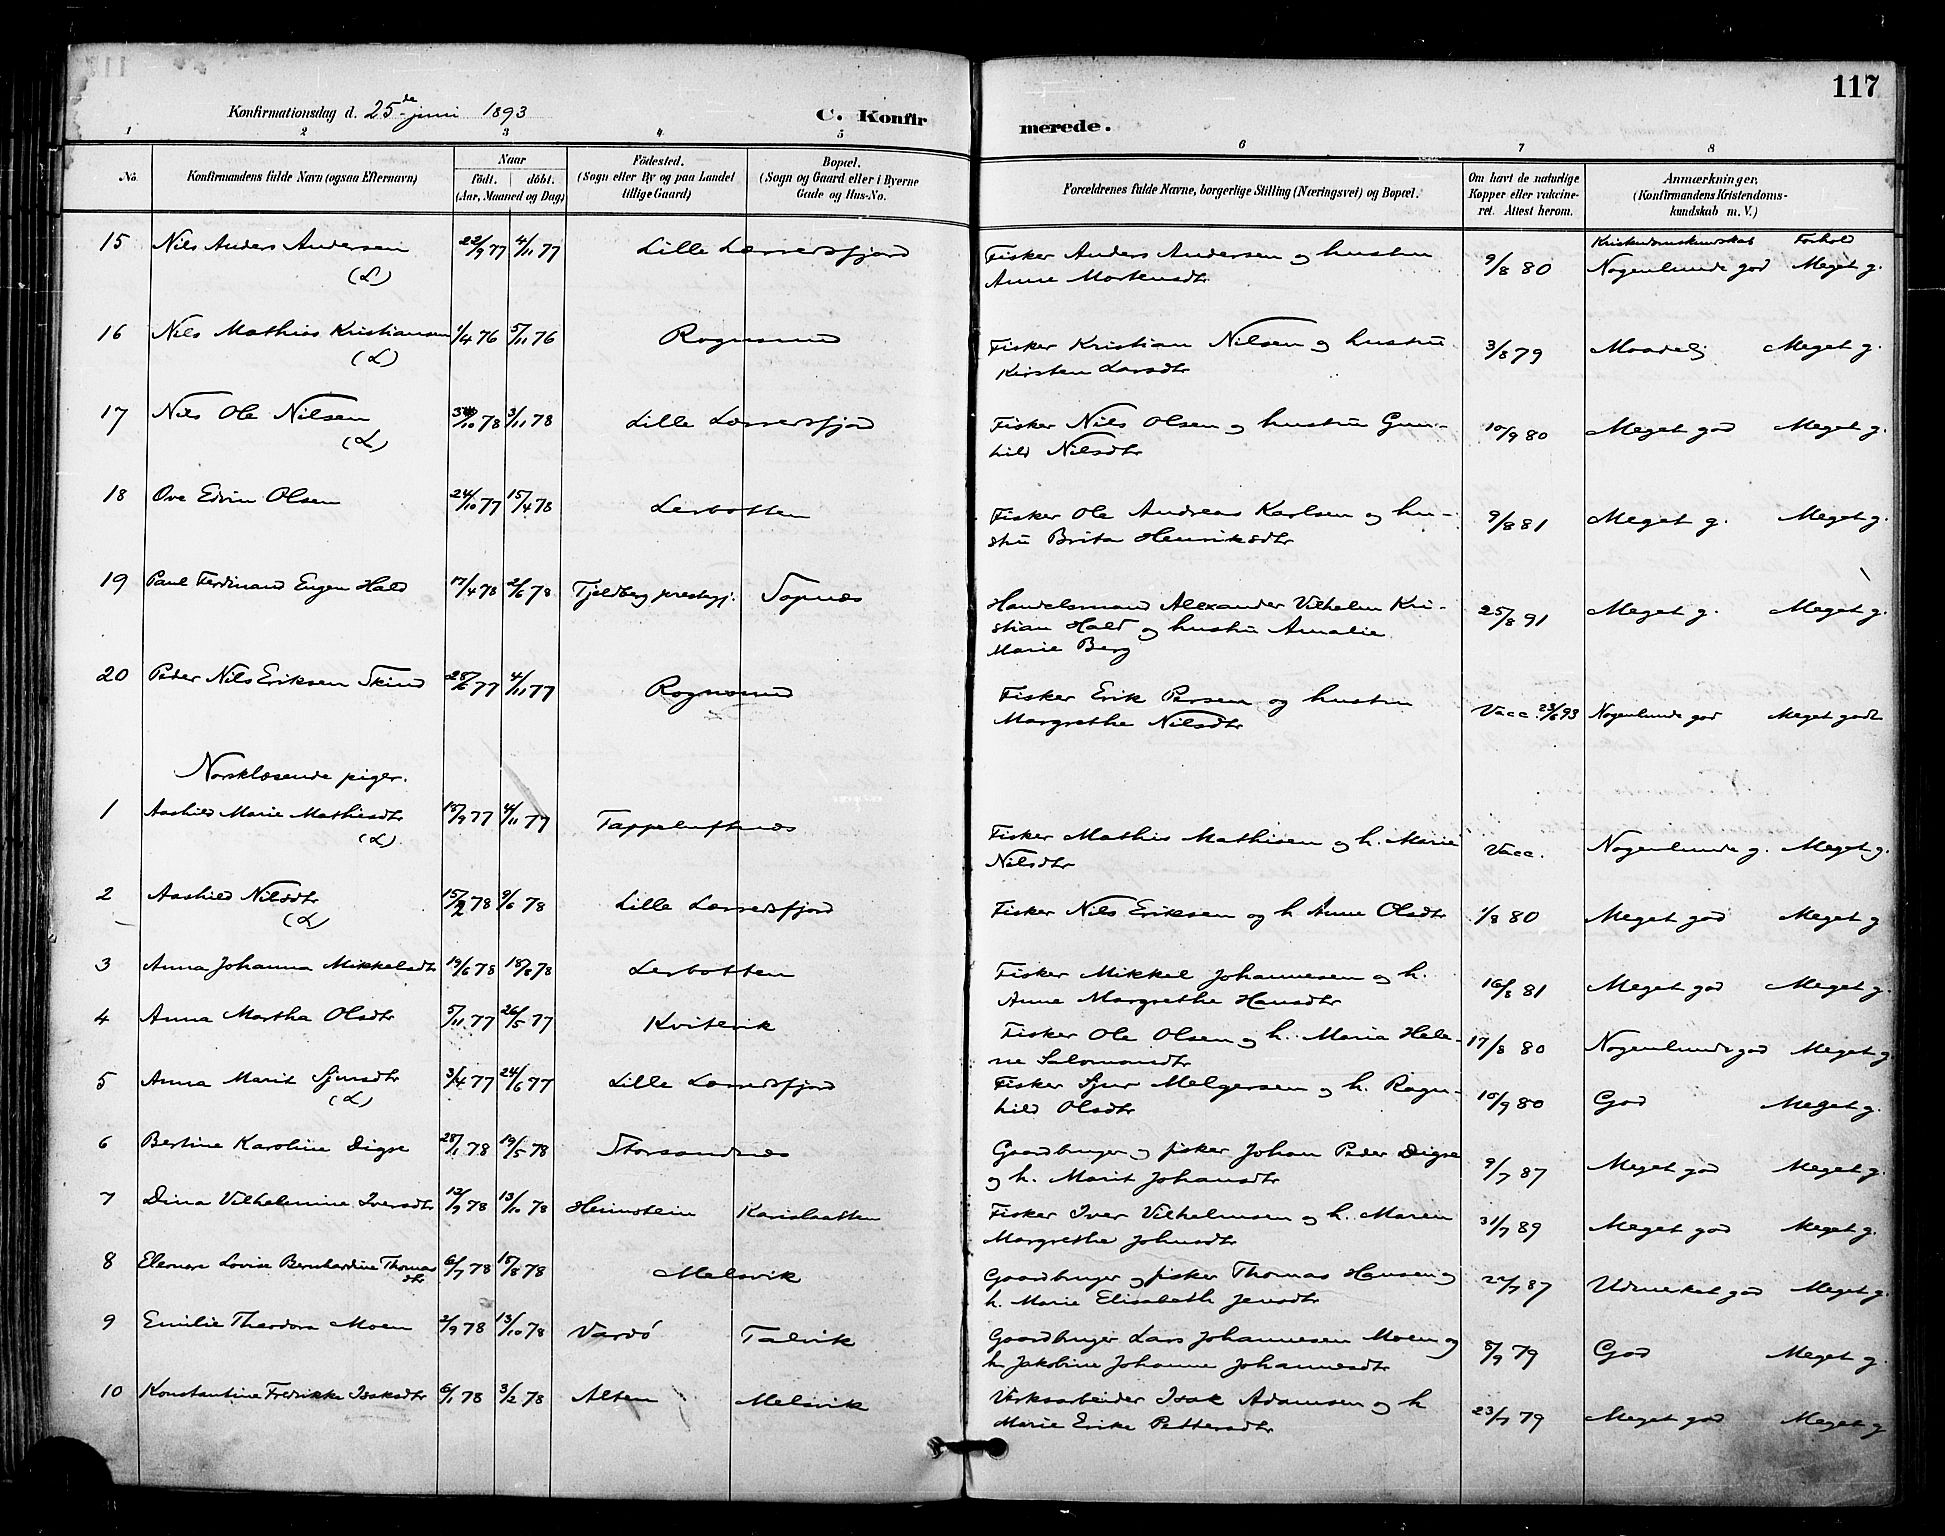 117
Konfirmationsdag d. 25de juni 1893
C. Konfirmerede.
1 2 3 4 5 6 7 8
No. Konfirmandens fulde Navn (ogsaa Efternavn) Naar födt. döbt. (Aar, Maaned og Dag) Födested. (Sogn eller By og paa Landet tillige Gaard) Bopæl. (Sogn og Gaard eller i Byerne Gade og Hus-No. Forældrenes fulde Navne, borgerlige Stilling (Næringsvei) og Bopæl. Om havt de naturlige Kopper eller vakcineret. Attest herom. Anmærkninger, (Konfirmandens Kristendomskundskab m. V.)
Kristendomskundskab Forhold
15 Nils Anders Andersen 22/9 77 4/11 77 Lille Lerresfjord Fisker Anders Andersen og hustru 9/8 80 Nogenlunde god Meget g.
(L) Anne Mortensdtr
16 Nils Mathias Kristiansen 1/4 76 5/11 76 Rognsund Fisker Kristian Nilsen og hustru 3/8 79 Maadelig Meget g.
(L) Kirsten Larsdtr
17 Nils Ole Nilsen /10 78 3/11 78 Lille Lerresfjord Fisker Nils Olsen og hustru Gun- 10/9 80 Meget god Meget g.
(L) hild Nilsdtr
18 Ove Edvin Olsen 24/10 77 15/4 78 Lerbotten Fisker Ole Andreas Karlsen og hu- 9/8 81 Meget g. Meget g.
stru Brita Henriksdtr
19 Paul Ferdinand Eugen Hald 17/4 78 2/6 78 Tjeldberg prestegj. Sopnæs Handelsmand Alexander Vilhelm Kri- 25/8 91 Meget g. Meget g.
stian Hald og hustru Amalie
Marie Berg
20 Peder Nils Eriksen Skind 28/6 77 4/11 77 Rognsund Fisker Erik Persen og hustru Vacc. 23/6 93 Nogenlunde god Meget godt
Margrethe Nilsdtr
Norsklæsende piger.
1 Aashild Marie Mathisdtr 15/9 77 4/11 77 Tappeluftnæs Fisker Mathis Mathisen og h. Marie Vacc. Nogenlunde g. Meget g.
(L) Nilsdtr
2 Aashild Nilsdtr 15/2 78 9/6 78 Lille Lerresfjord Fisker Nils Eriksen og h Anne Olsdtr 1/8 80 Meget god Meget g
(L)
3 Anna Johanna Mikkelsdtr 19/6 78 18/8 78 Lerbotten Fisker Mikkel Johannesen og h. 16/8 81 Meget god Meget g.
Anne Margrethe Hansdtr
4 Anna Martha Olsdtr 5/11 77 26/5 77 Kvitevik Fisker Ole Olsen og h. Maria Hele- 17/8 80 Nogenlunde god Meget g.
ne Salomonsdtr
5 Anna Marit Sjursdtr 3/4 77 24/6 77 Lille Lerresfjord Fisker Sjur Melgersen og h. Ragn- 10/9 80 God Meget g.
(L) hild Olsdtr
6 Bertine Karoline Digre 28/1 78 19/5 78 Storsandnæs Gaardbruger og fisker Johan Peder Digre 9/7 87 Meget god Meget g.
og h. Marit Johansdtr
7 Dina Vilhelmine Iversdtr 12/9 78 13/10 78 Heimstein Karislaatten Fisker Iver Vilhelmsen og h. Maren 31/7 89 Meget god Meget g.
Margrethe Johnsdtr
8 Elenore Lovise Bernhardine Thomas 6/7 78 15/8 78 Melsvik Gaardbruger og fisker Thomas Hansen og 22/7 87 Udmerket god Meget g.
dtr h. Marie Elisabeth Jensdtr
9 Emilie Theodora Moen 2/9 78 13/10 78 Vardö Talvik Gaardbruger Lars Johannesen Moen og 8/9 79 God Meget g.
h Jakobine Johanne Johannesdtr
10 Konstantine Fredrikke Isaksdtr 6/1 78 3/2 78 Alten Melsvik Verksarbeider Isak Adamsen og h 23/7 79 Meget god Meget g
Marie Erike Pettersdtr